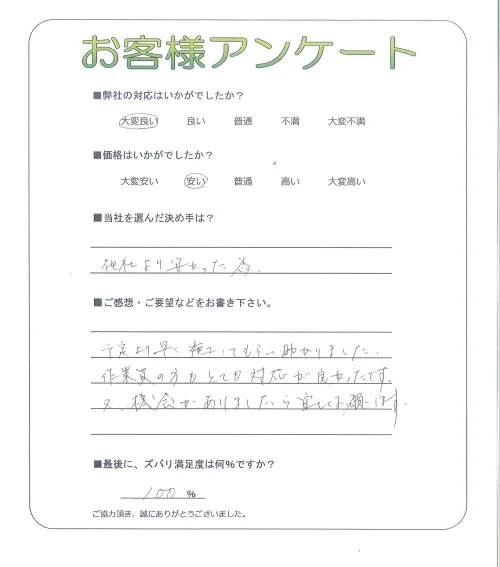 お客様アンケート
■弊社の対応はいかがでしたか？
大変良い 良い 普通 不満 大変不満
■価格はいかがでしたか？
大変安い 安い 普通 高い 大変高い
■当社を選んだ決め手は？
他社より安かった為.
■ご感想・ご要望などをお書き下さい。
予定より早く施工してもらい助かりました.
作業員の方もとても対応が良かったです.
又、機会がありましたら宜しくお願いします.
■最後に、ズバリ満足度は何％ですか？
100 ％
ご協力頂き、誠にありがとうございました。